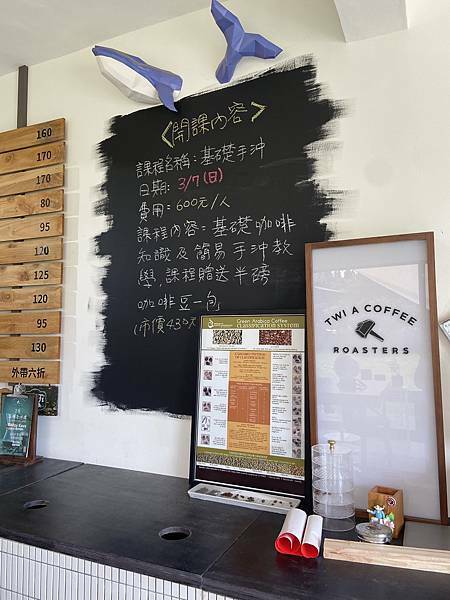 160
170
170
80
95
120
125
120
95
130
外帶六折
<開課內容>
課程名稱：基礎手沖
日期：3/7（日）
費用：600元/人
課程內容：基礎咖啡
知識及簡易手沖教
學，課程贈送半磅
咖啡豆一包
Green Arabica Coffee
CLASSIFICATION SYSTEM
TWI A COFFEE
ROASTERS